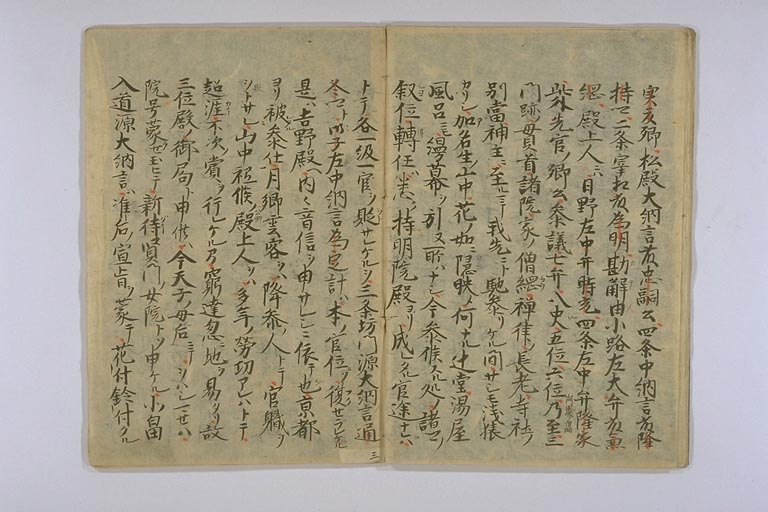 実夏卿松殿大納言忠嗣公四条中納言
持二条宰相為明勘解由小路左大弁兼
綱殿上人ニハ日野左中弁時光四条左中弁隆家
此外先官ノ卿公参議七弁八史五位六位乃至三
門跡貫首諸院家ノ僧綱禅律ノ長老寺社ノ
別當神主ニ至ルニテ我先ニト馳参リケル間サシモ浅猿
カリシ加名生山中花ノ如ニ隠映シ何ナル辻堂湯屋
風呂ニモ幔幕ヲ引ヌ所ハナシ今参候スル処ノ諸
叙位轉任悉ク持明院殿ヨリ成レタル官途ナレハ
トテ各一級一官ヲ貶サレケルニ三条坊門源大納言通
冬ト御子左中納言為定計ハ本ノ官位ニ復セラル
是ハ吉野殿ヘ内々音信ヲ申サレシニ依テ也京都
ヨリ被参仕月卿雲客ヲハ降参人トテ官職ヲ
シトサレ山中祗候殿上人ヲハ多年ノ労功アレハトテ
超涯不次ノ賞ヲ行レケル乃窮達忽地ヲ易タリ故
三位殿ノ御局ト申セハ今天子ノ母后ニテヲハシマセハ
院号蒙セ玉ヒテ新待賢門ノ女院トソ申ケル小畠
入道源大納言ハ准后ノ宣旨ヲ蒙テ花付鈴付タル
三